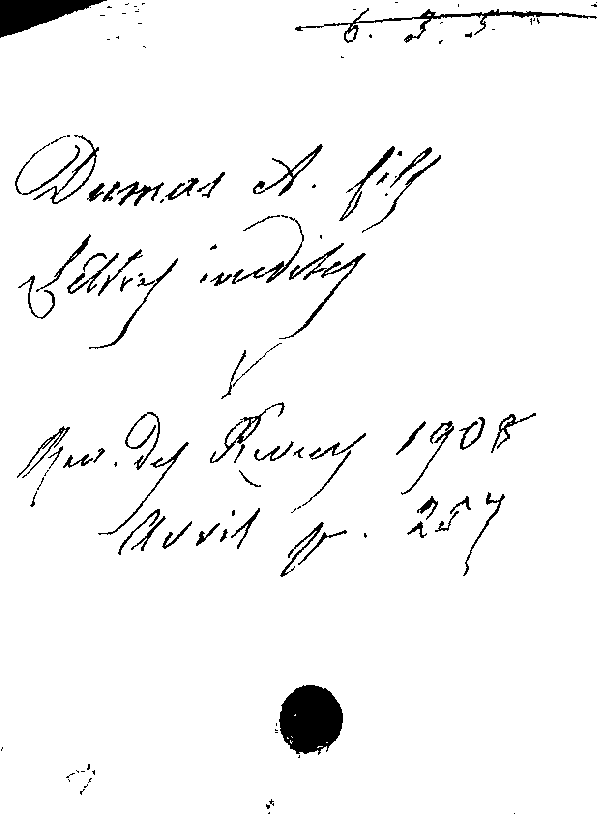 6. 3. 5.
Dumas A. fils
Lettres inedites
Rev. des Revues 1908
Avril p. 257